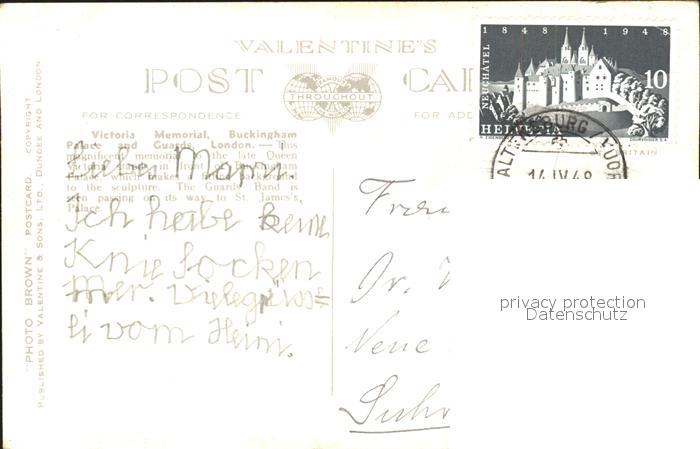 VALENTINE'S
POST CA
FAMOUS THROUGHOUT
FOR CORRESPONDENCE
FOR ADD
NEUCHÂTEL
1848 1948
10
HELVETIA
14.IV.48
Victoria Memorial, Buckingham
Palace and Guards, London. — This
magnificent memorial to the late Queen
Victoria in front of Buckingham
Palace which makes background
to the sculpture. The Guards' Band is
seen passing on its way to St. James's
Palace.
"PHOTO BROWN" POSTCARD COPYRIGHT
PUBLISHED BY VALENTINE & SONS, LTD., DUNDEE AND LONDON
BRITAIN
Ich habe keine
Knie Socken
mer. Vielegrüss=
li vom Heini.
Frau
Dr.
Neue
Suhr
privacy protection
Datenschutz